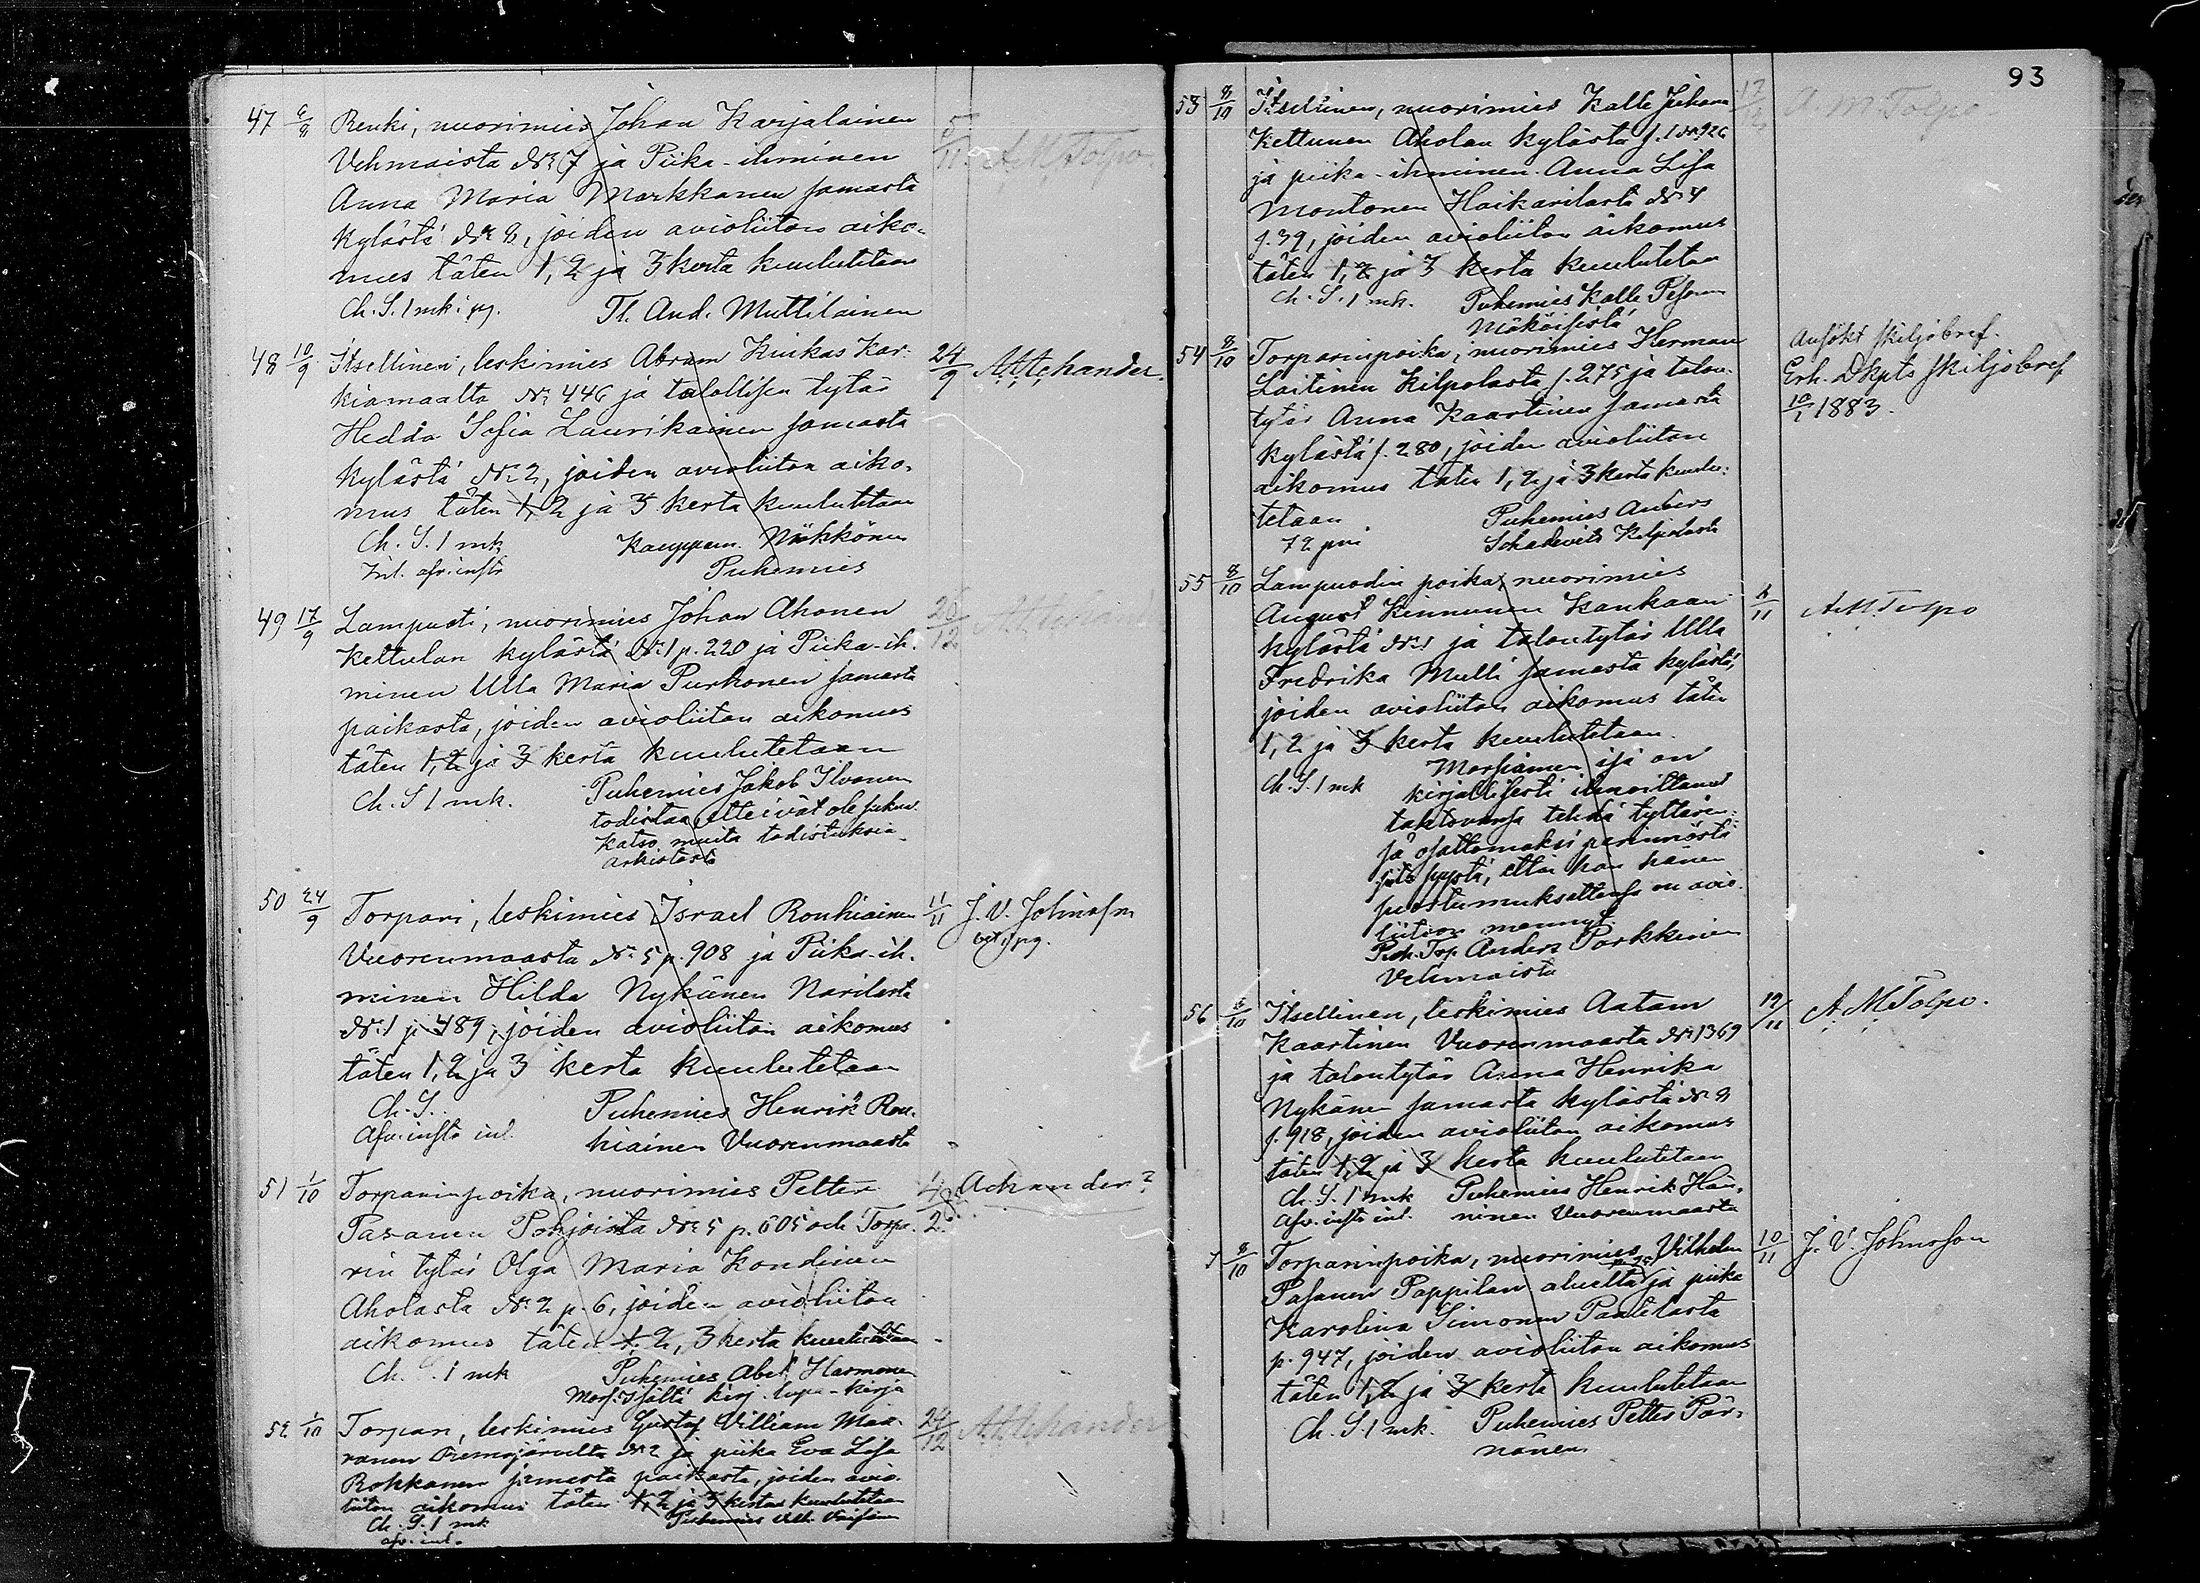 93
47 6/8 Renki, nuorimies Johan Karjalainen 5/11 A M Tolpo.
Vehmaista № 7 ja Piika-ihminen
Anna Maria Markkanen samasta
kylästä № 8, joiden avioliiton aiko-
mus täten 1, 2 ja 3 kerta kuulutetaan
Ch. S. 1 mk: pg. Tl. And. Muttilainen
48 10/9 Itsellinen, leskimies Abram Kiukas Kar- 24/9
kiamaalta № 446 ja talollisen tytär
Hedda Sofia Laurikainen samasta
kylästä № 2, joiden avioliiton aiko-
mus täten 1, 2 ja 3 kerta kuulutetaan
Ch. S. 1 mk Kauppam. Nökkönen
Inl. afv. instr Puhemies
49 17/9 Lampuoti, nuorimies Johan Ahonen 26/12
Kettulan kylästä № 1 p. 220 ja Piika-ih-
minen Ulla Maria Purhonen samasta
paikasta, joiden avioliiton aikomus
täten 1, 2 ja 3 kerta kuulutetaan
Ch. S 1 mk. Puhemies Jakob Ilvonen
todistaa, ett'eivät ole sukua.
Katso muita todistuksia
arkistosta
50 24/9 Torpari, leskimies Israel Ronkiainen 11/11 J. V. Johnsson
Vuorenmaasta № 5 p. 908 ja Piika-ih-
minen Hilda Nykänen Narilasta
№ 1 p 489, joiden avioliiton aikomus
täten 1, 2 ja 3 kerta kuulutetaan
Ch. S. Puhemies Henrik Ron-
Afv. instr inl. kiainen Vuorenmaasta
51 1/10 Torparinpoika, nuorimies Petter 4/2
Pasanen Pohjoista № 5 p. 605 och Torpa-
rin tytär Olga Maria Kondinen
Aholasta № 2 p. 6, joiden avioliiton
aikomus täten 1, 2, 3 kerta kuulutetaan
Ch. S. 1 mk Puhemies Abel Harmonen
Mors. Isältä kirj. lupa-kirja
52 1/10 Torpari, leskimies Gustaf William Mar- 26/12
ranen № 2 ja piika Eva Lisa
Rokkanen samasta paikasta, joiden avio-
liiton aikomus täten 1, 2 ja 3 kertaa kuulutetaan
Ch. S. 1 mk Puhemies
afv. inl.
53 8/10 Itsellinen, nuorimies Kalle Juhana 17/12 A. M Tolpo
Kettunen Aholan kylästä s. 1 № 926
ja piika-ihminen Anna Lisa
Montonen Haikarilasta № 4
s. 39, joiden avioliiton aikomus
täten 1, 2 ja 3 kerta kuulutetaan
Ch. S. 1 mk. Puhemies Kalle Pesonen
54 8/10 Torparinpoika, nuorimies Herman Ansökt skiljobref.
Laitinen Kilpolasta s. 275 ja talon- Erh. Dkpts skiljobref
tytär Anna Kaartinen samasta 10/1 1883.
kylästä s. 280, joiden avioliiton
aikomus täten 1, 2 ja 3 kerta kuulu-
tetaan Puhemies Anders
72 pni Schadevits Kilpolasta
55 8/10 Lampuodin poika, nuorimies
August Kinnunen Kankaan 6/11 A. M. Tolpo
kylästä № 1 ja talontytär Ulla
Fredrika Mulli samasta kylästä,
joiden avioliiton aikomus täten
1, 2 ja 3 kerta kuulutetaan.
Ch. S. 1 mk Morsiamen isä on
kirjallisesti ilmoittanut
tahtovansa tehdä tyttären-
sä osattomaksi perinnöstä
siitä syystä, että hän hänen
suostumuksettansa on avio-
liittoon mennyt.
Puh. Torp. Anders Parkkinen
Vehmaista
56 8/10 Itsellinen, leskimies Aatam 19/11 A. M Tolpo.
Kaartinen Vuorenmaasta № 1369
ja talontytär Anna Henrika
Nykänen samasta kylästä № 8
s. 918, joiden avioliiton aikomus
täten 1, 2 ja 3 kerta kuulutetaan
Ch. S. 1 mk Puhemies Henrik Hän-
Afv. instr inl. ninen Vuorenmaasta
7 8/10 Torparinpoika, nuorimies Vilhelm 10/11 J. V. Johnsson
Pasanen Pappilan aluelta ja piika
Karolina Simonen Paatelasta
p. 947, joiden avioliiton aikomus
täten 1, 2 ja 3 kerta kuulutetaan
Ch. S. 1 mk. Puhemies Petter Pär-
nänen